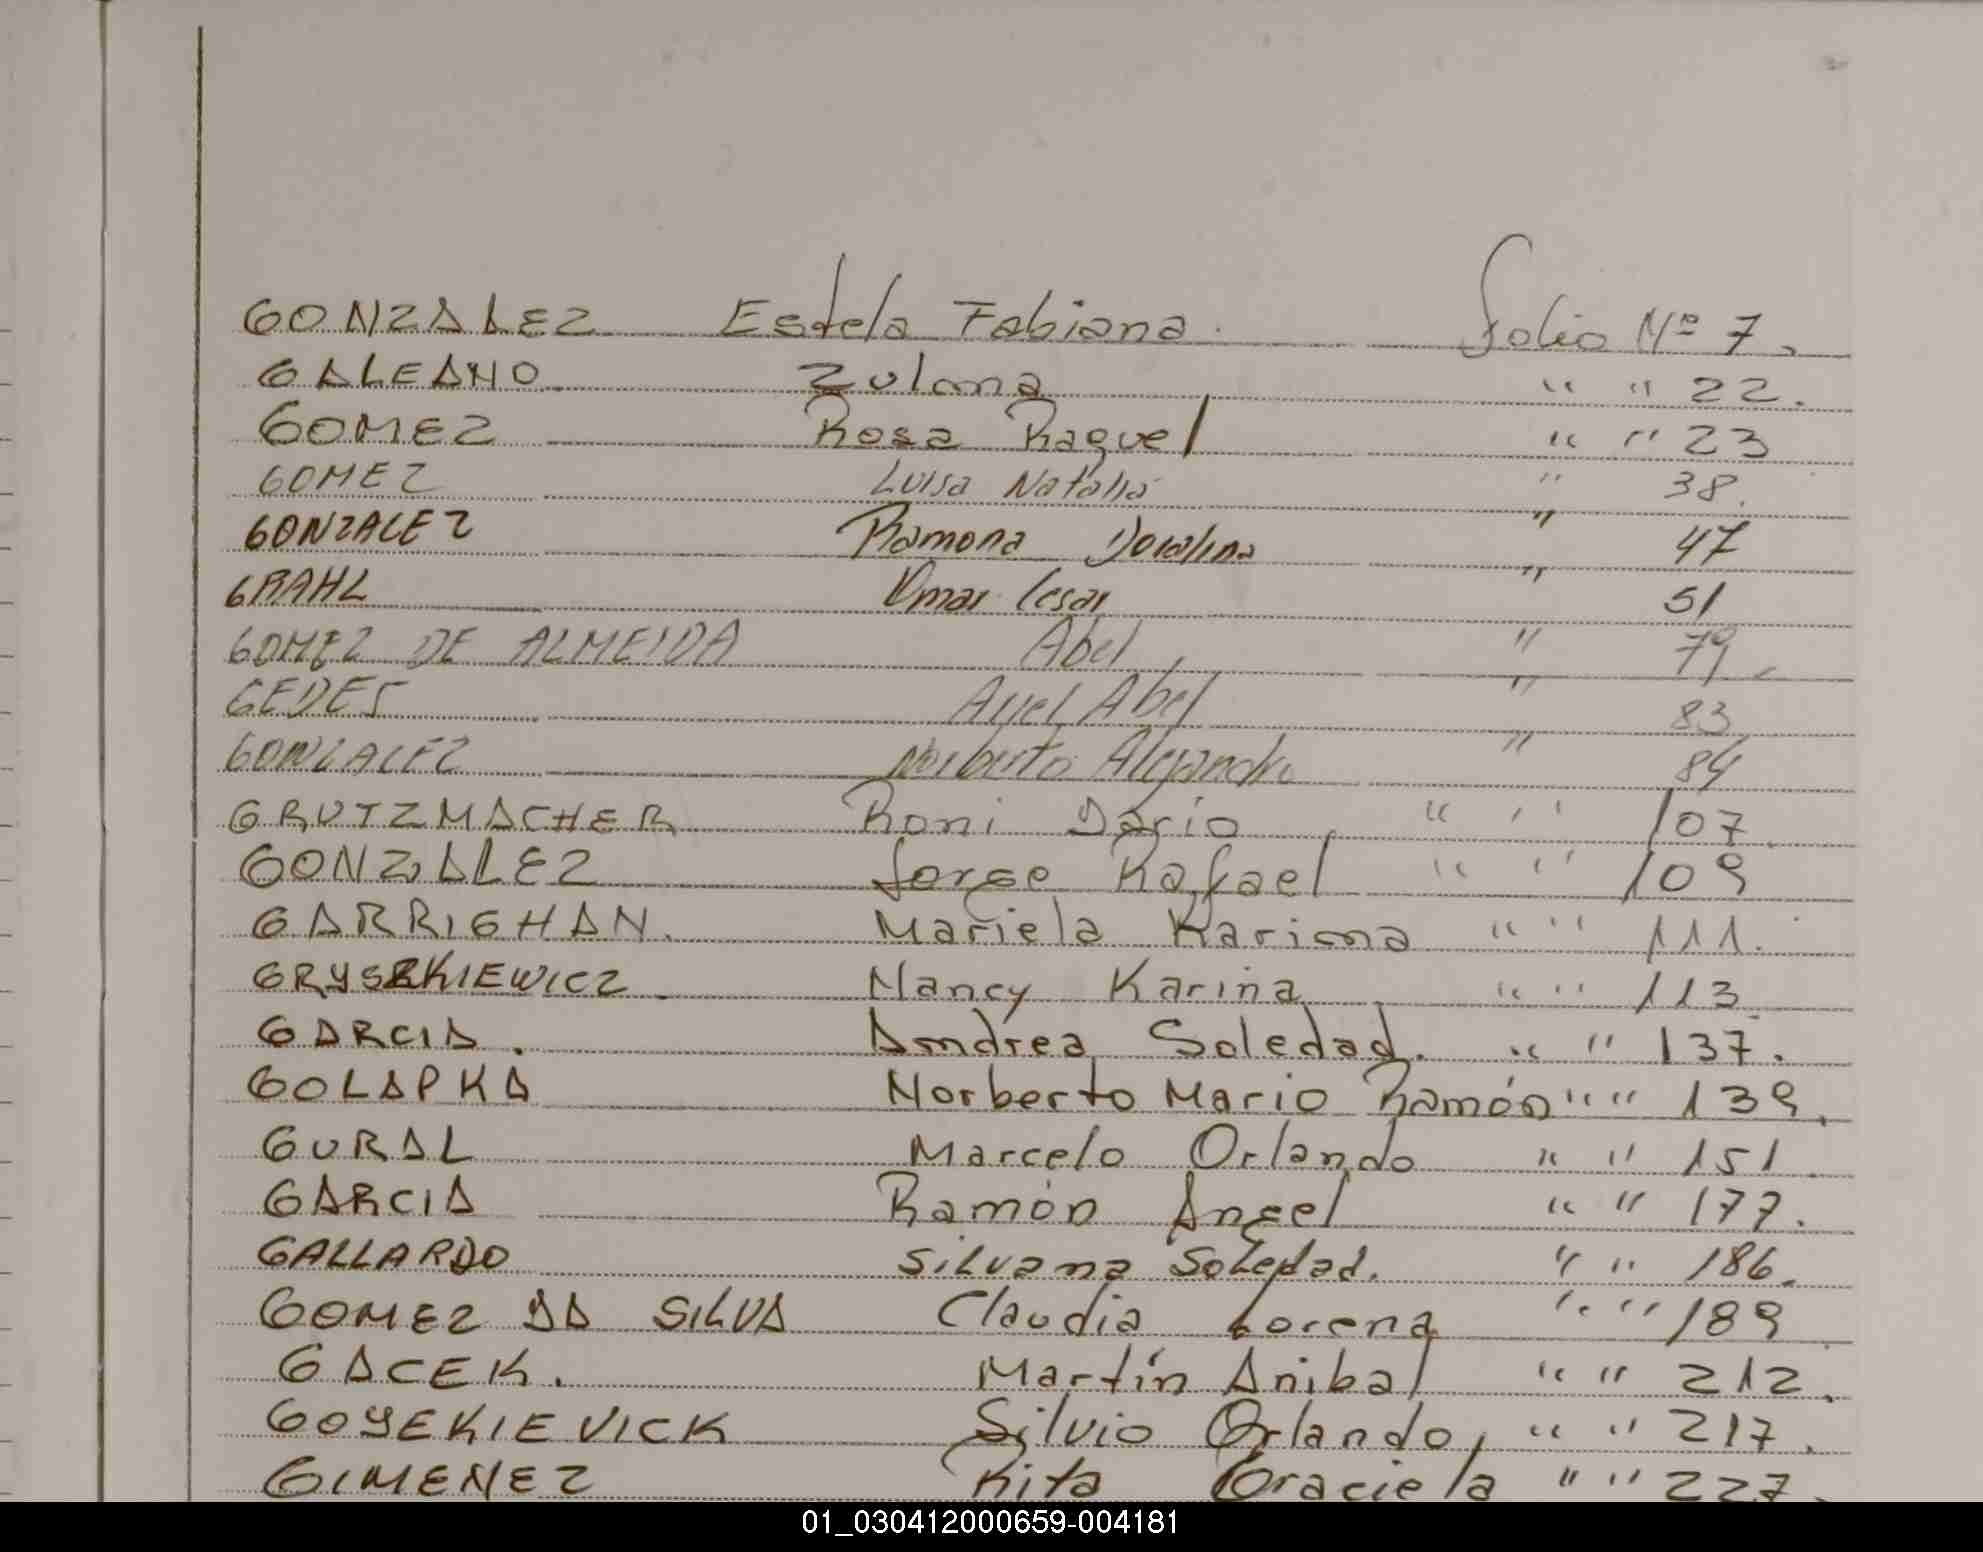 GONZALEZ Estela Fabiana. Folio Nº 7.
GALEANO. Zulma " " 22.
GOMEZ Rosa Raquel " " 23
GOMEZ Luisa Natalia " 38.
GONZALEZ Ramona Doralina " 47
GRAHL Omar Cesar " 51
GOMEZ DE ALMEIDA Abel, " 79
GEDES Ariel Abel " 83
GONZALEZ Norberto Alejandro " 84
GRUTZMACHER Roni Dario, " " 107
GONZALEZ Jorge Rafael " " 109
GARRIGHAN. Mariela Karina " " 111.
GRYSZKIEWICZ. Nancy Karina " " 113
GARCIA. Andrea Soledad. " " 137.
GOLAPKA Norberto Mario Ramón " " 139.
GURAL Marcelo Orlando " " 151.
GARCIA Ramón Angel " " 177.
GALLARDO Silvana Soledad. " " 186.
GOMEZ DA SILVA Claudia Lorena " " 189
GACEK. Martín Anibal " " 212.
GOYEKIEVICK Silvio Orlando, " " 217.
GIMENEZ Rita Graciela " " 227.
01_030412000659-004181